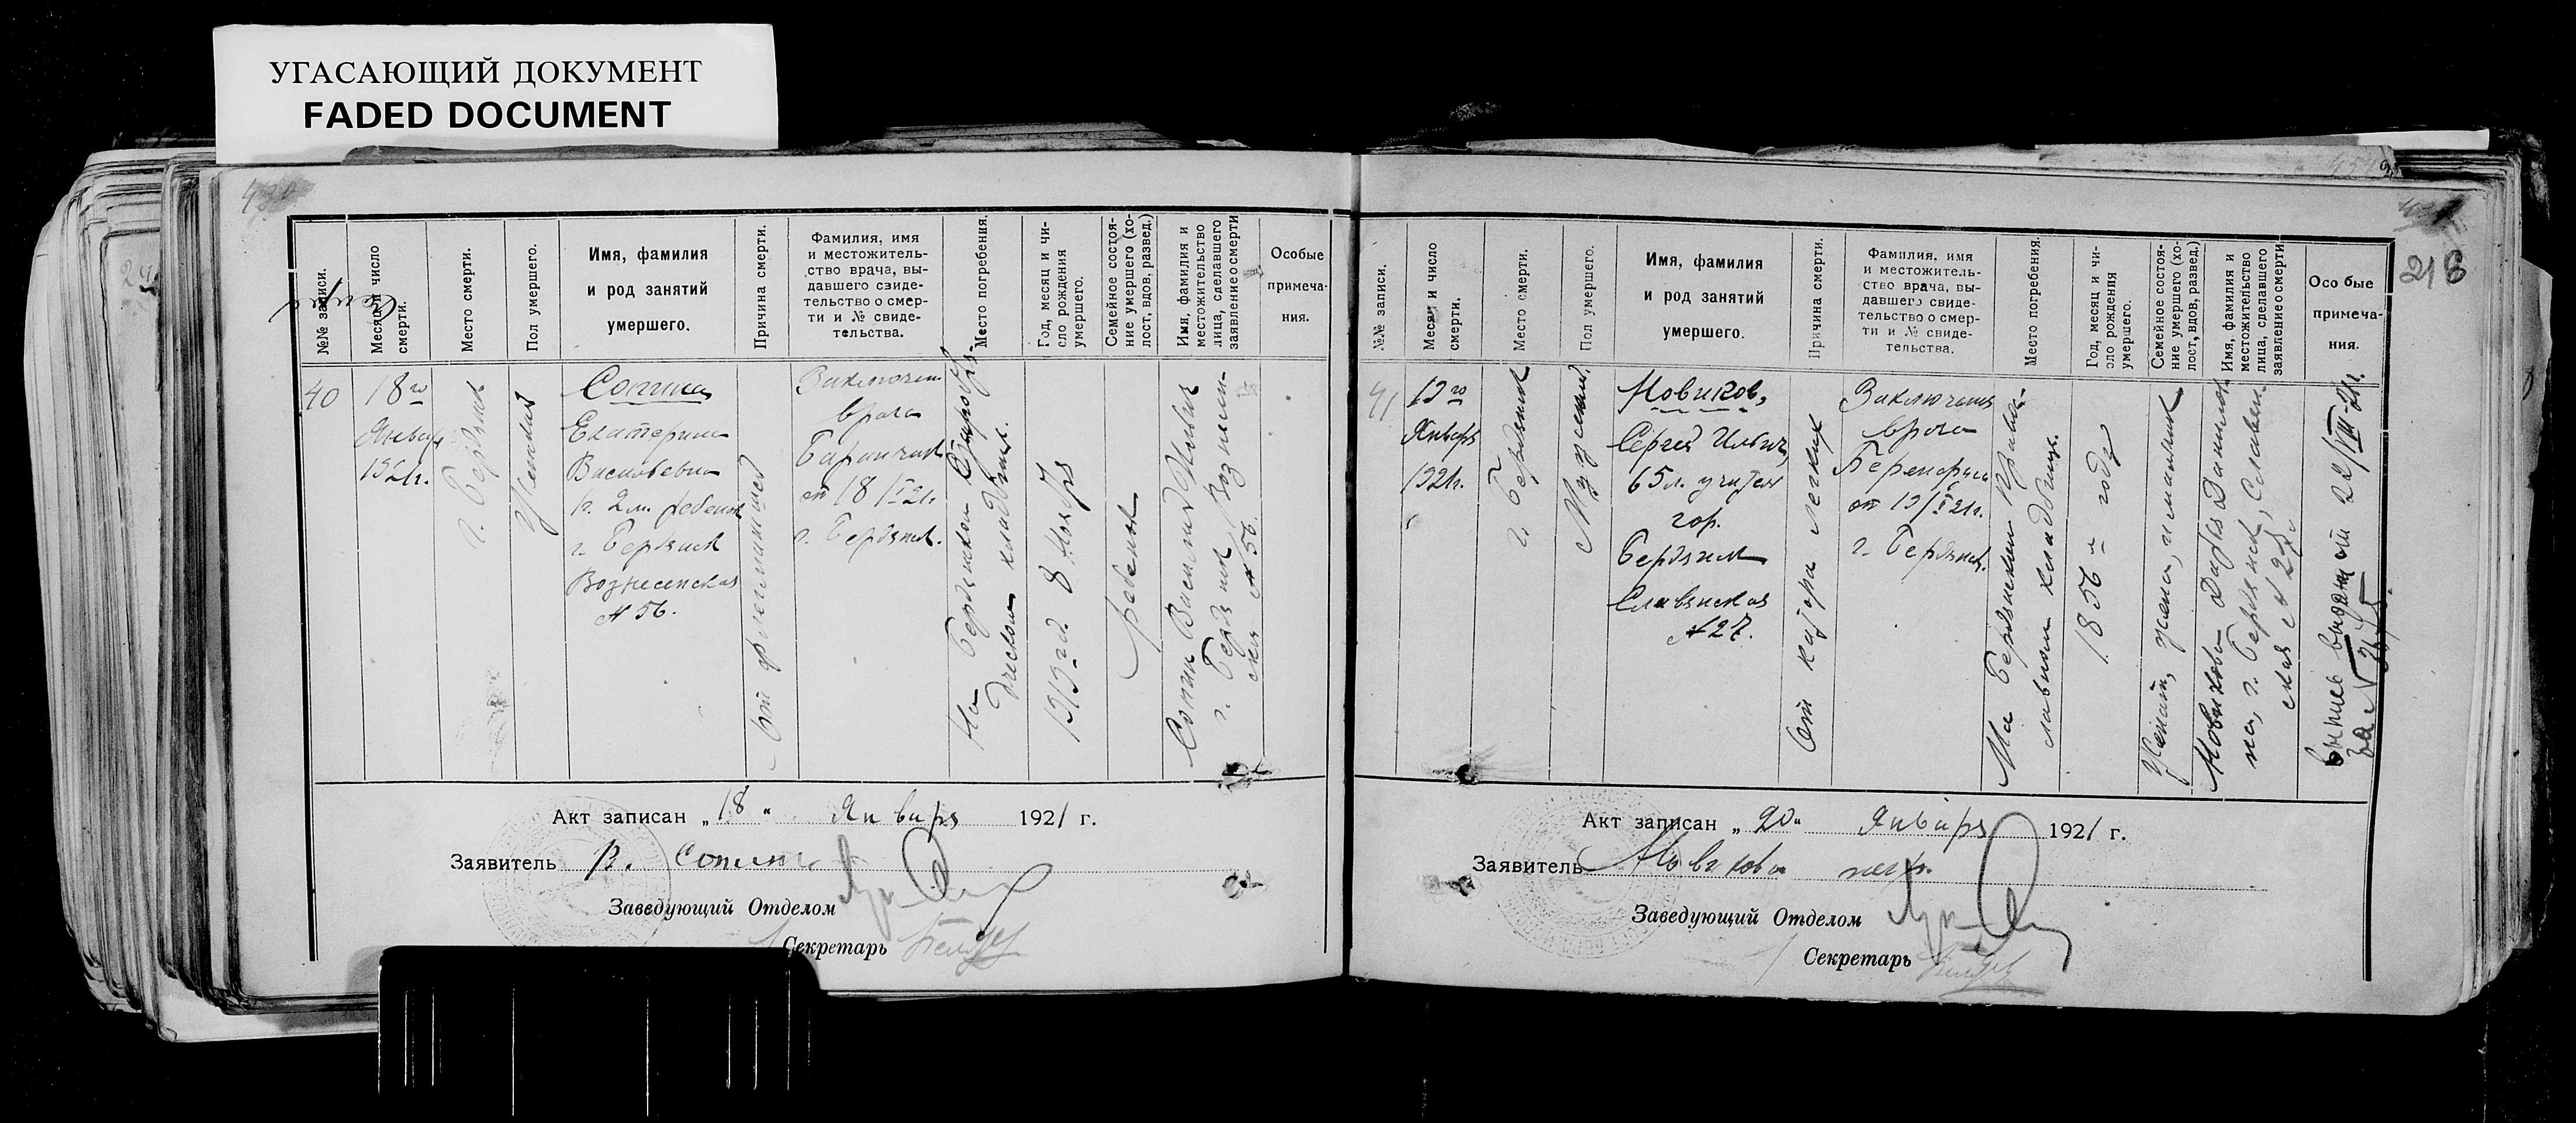 УГАСАЮЩИЙ ДОКУМЕНТ
FADED DOCUMENT
№№ записи.
Месяц и число смерти.
Место смерти.
Пол умершего.
Имя, фамилия
и род занятий
умершего.
Причина смерти.
Фамилия, имя
и местожитель-
ство врача, вы-
давшего свиде-
тельство о смер-
ти и № свиде-
тельства.
Место погребения.
Год, месяц и чи-
сло рождения
умершего.
Семейное состоя-
ние умершего (хо-
лост, вдов, развед.)
Имя, фамилия и
местожительство
лица, сделавшего
заявление о смерти
Особые
примеча-
ния.
40
18го
Январ
1921г.
г. Бердянск
Женский
Сопина
Екатерина
Васильевна
г. Бердянск
Вознесенская
№ 56.
врача
от 18/I 21г.
г. Бердянск.
На Бердянском
кладбище.
8 Ноября
ребенок
Сопин Василий
г. Бердянск Вознесен-
ская № 56.
Акт записан „18“ Января 1921 г.
Заявитель В. Сопин
Заведующий Отделом
Секретарь
216
№№ записи.
Месяц и число
смерти.
Место смерти.
Пол умершего.
Имя, фамилия
и род занятий
умершего.
Причина смерти.
Фамилия, имя
и местожитель-
ство врача, вы-
давшего свиде-
тельство о смер-
ти и № свиде-
тельства.
Место погребения.
Год, месяц и чи-
сло рождения
умершего.
Семейное состоя-
ние умершего (хо-
лост, вдов, развед.)
Имя, фамилия и
местожительство
лица, сделавшего
заявление о смерти
Особые
примеча-
ния.
41
19го
Январ
1921г.
г. Бердянск
Мужский
Новиков,
Сергей Ильич,
65 л. учитель
гор.
Бердянск
Славянская
№ 27.
От катара легких
Заключения
врача
от 19/I 21г.
г. Бердянск.
На Бердянском Право-
славном кладбище.
1856 м году
Женат, жена
Новикова Дарья Данилов-
на, г. Бердянск, Славян-
ская № 27
Выпись выдана от 22/III-21г.
за №
Акт записан „20“ Января 1921 г.
Заявитель Новикова
Заведующий Отделом
Секретарь